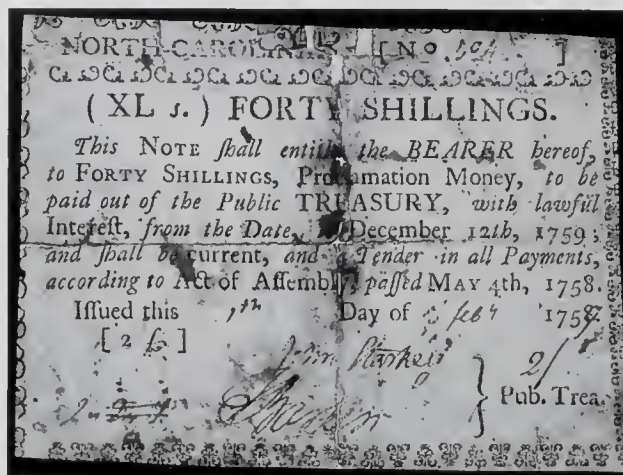 NORTH-CAROLINA [No 594. ]
(XL s.) FORTY SHILLINGS.
This NOTE ſhall entitle the BEARER hereof,
to FORTY SHILLINGS, Proclamation Money, to be
paid out of the Public TREASURY, with lawful
Intereſt, from the Date, December 12th, 1759,
and ſhall be current, and a Tender in all Payments,
according to Act of Aſſembly, paſſed MAY 4th, 1758.
Iſſued this 1th Day of feb 1758.
[2 ]
John Starkey
Pub. Trea.